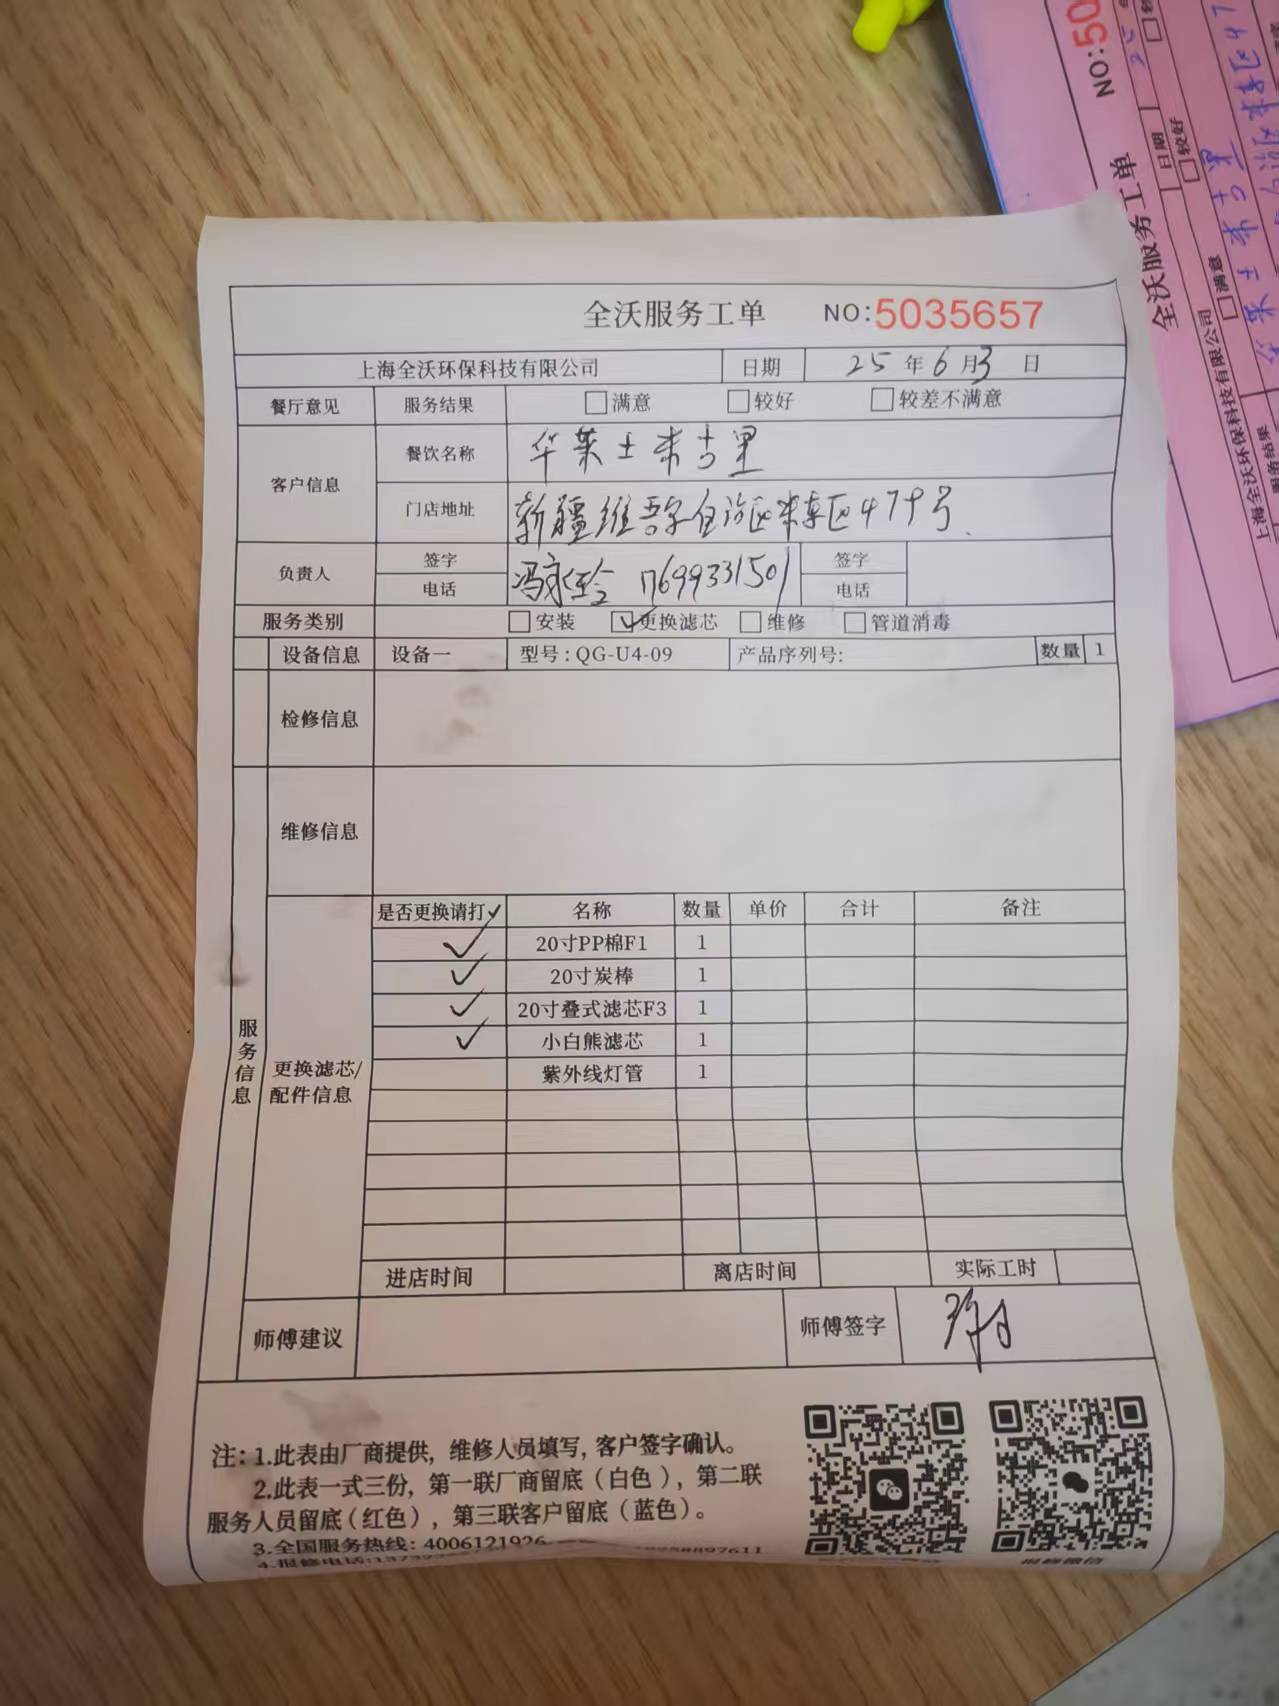 全沃服务工单 NO:5035657
上海全沃环保科技有限公司 日期 25年6月3日
餐厅意见 服务结果 满意 较好 较差不满意
客户信息 餐饮名称 华莱士米古里
门店地址 新疆维吾尔自治区米东区479号
负责人 签字 签字
电话 17699331501 电话
服务类别 安装 更换滤芯 维修 管道消毒
设备信息 设备一 型号:QG-U4-09 产品序列号: 数量 1
检修信息
维修信息
服务信息
更换滤芯/配件信息
是否更换请打✓ 名称 数量 单价 合计 备注
✓ 20寸PP棉F1 1
✓ 20寸炭棒 1
✓ 20寸叠式滤芯F3 1
✓ 小白熊滤芯 1
紫外线灯管 1
进店时间 离店时间 实际工时
师傅建议 师傅签字
注:1.此表由厂商提供,维修人员填写,客户签字确认。
2.此表一式三份,第一联厂商留底(白色),第二联
服务人员留底(红色),第三联客户留底(蓝色)。
3.全国服务热线:4006121926
4.报修电话:
全沃服务工单 NO:50
上海全沃环保科技有限公司 日期
服务结果 满意 较好